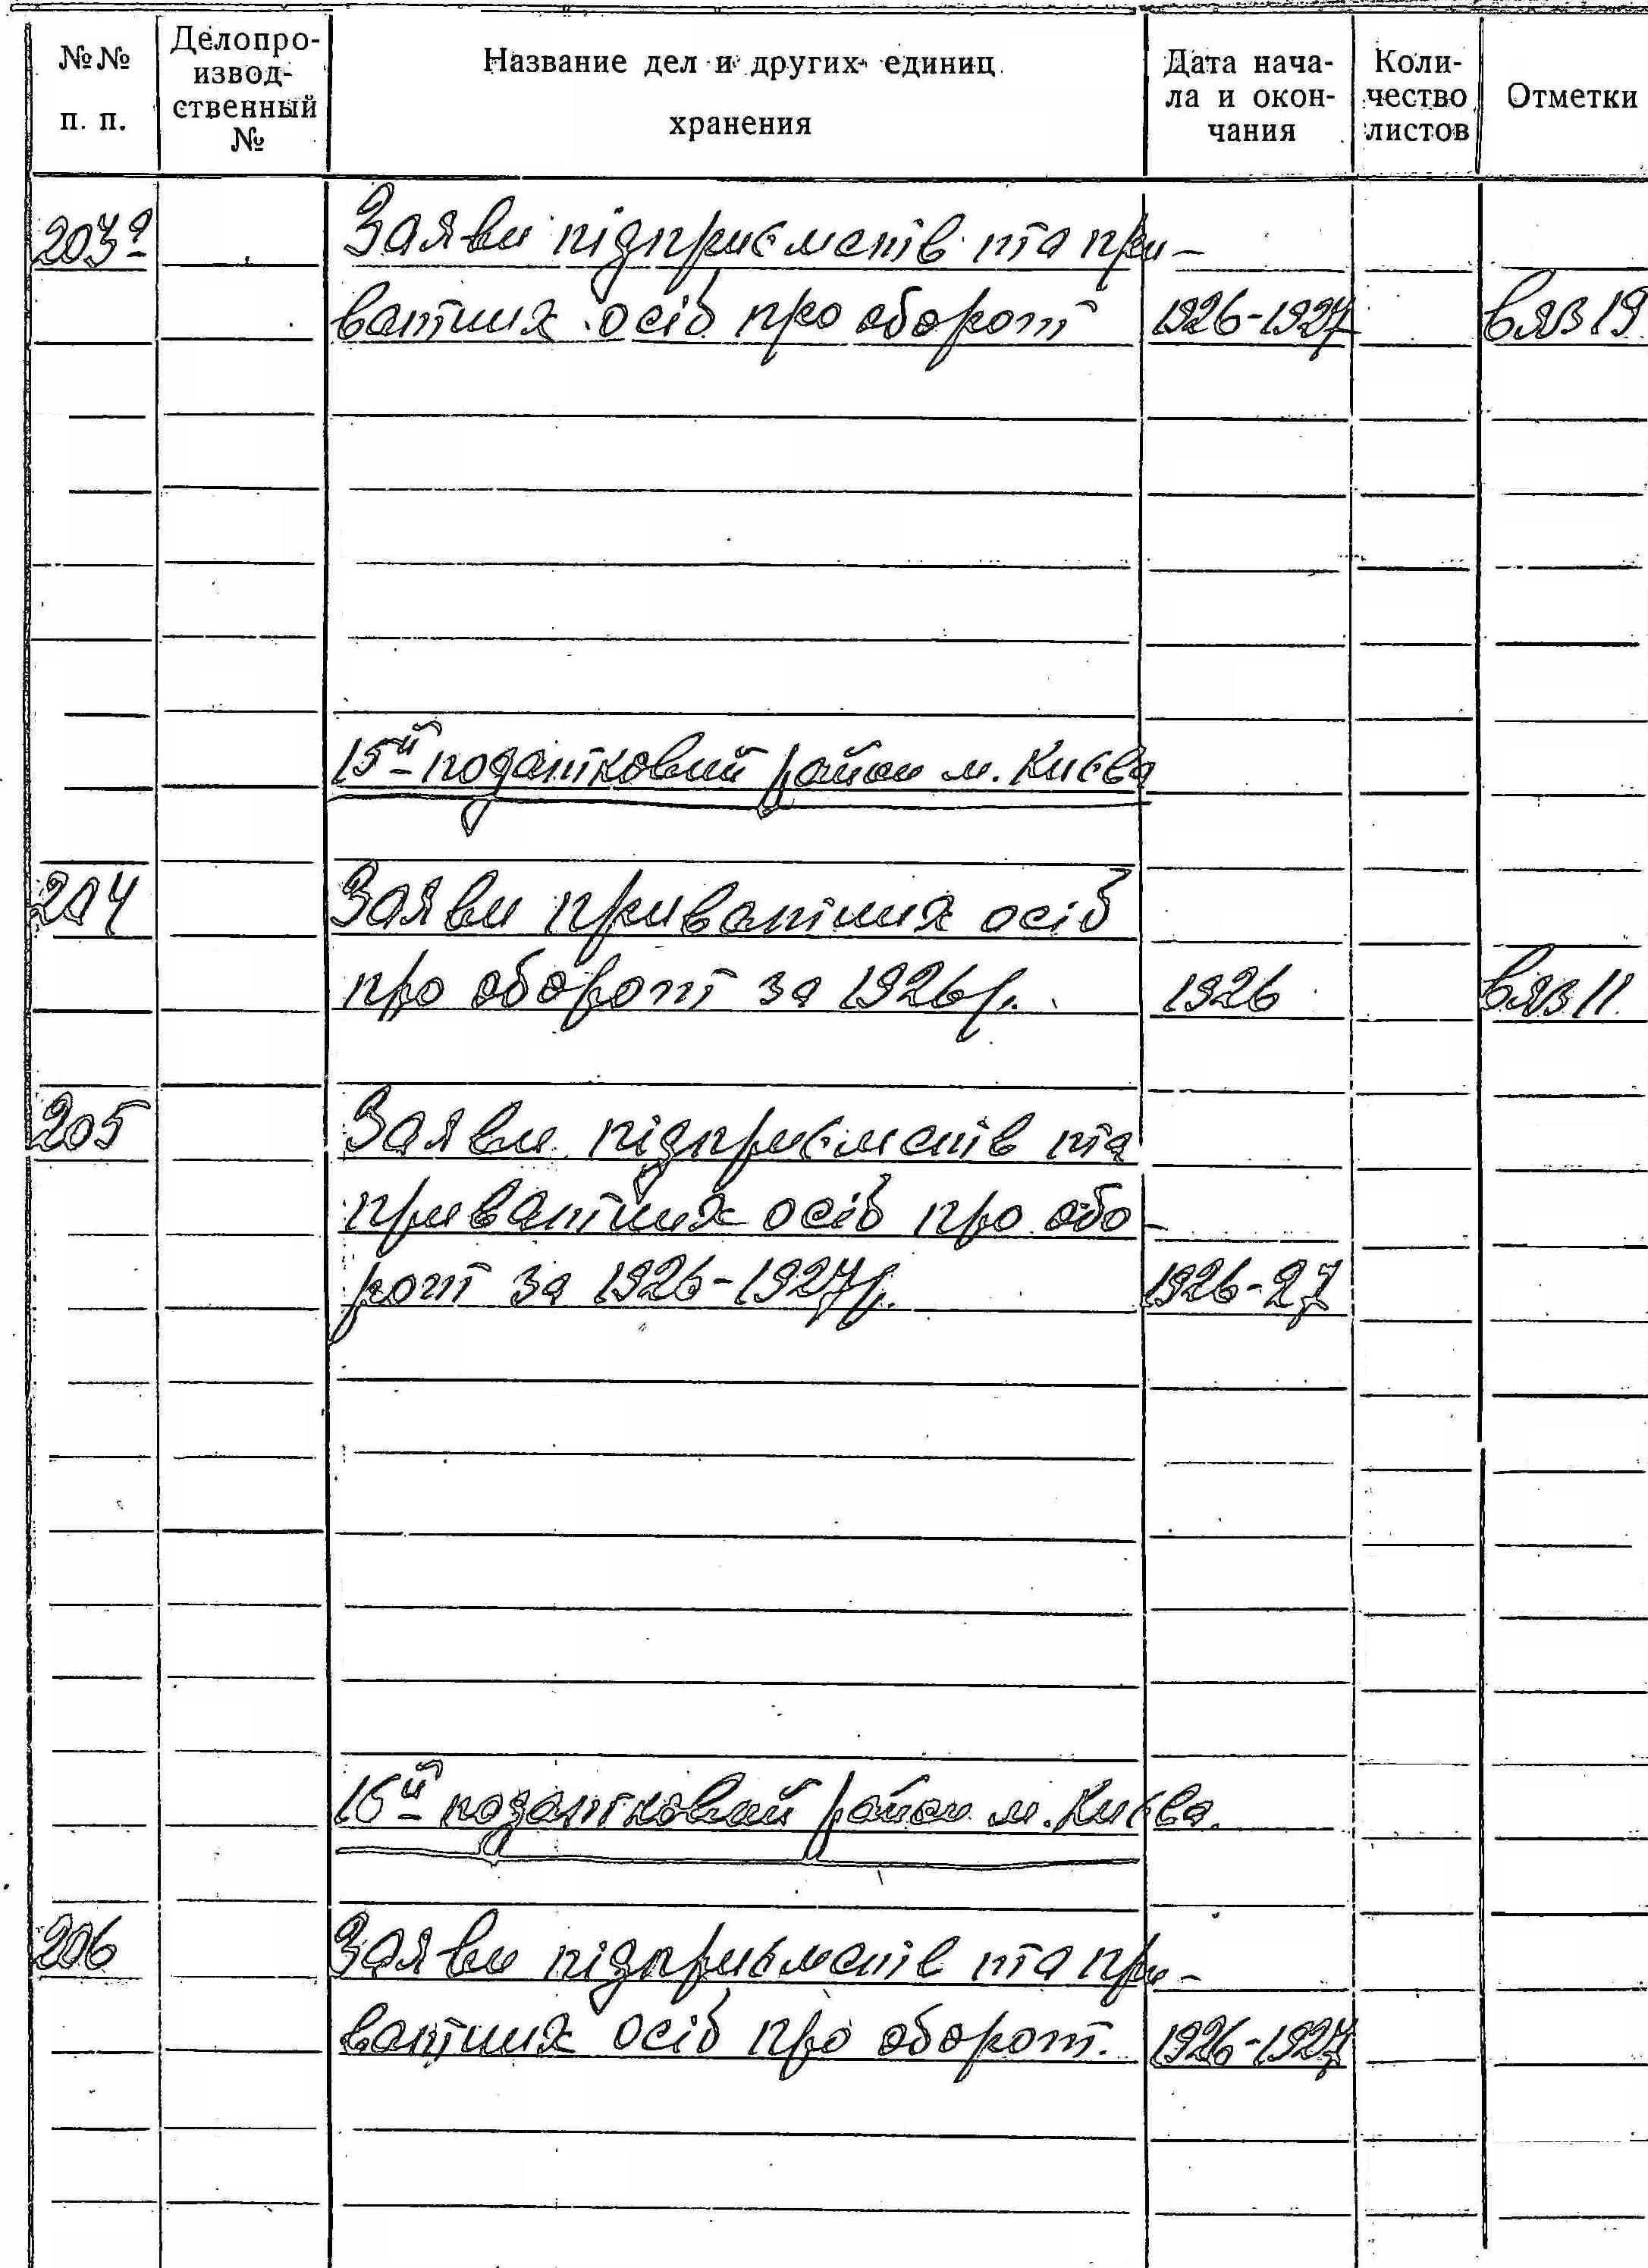 №№ п. п. Делопро-извод-ственный № Название дел и других единиц хранения Дата нача-ла и окон-чания Коли-чество листов Отметки
203а Заяви підприємств та при-
ватних осіб про оборот 1926-1927 вяз 19
15й податковий район м. Києва
204 Заяви приватних осіб
про оборот за 1926 р. 1926 вяз 11
205 Заяви підприємств та
приватних осіб про обо-
рот за 1926-1927 р. 1926-27
16й податковий район м. Києва.
206 Заяви підприємств та при-
ватних осіб про оборот. 1926-1927